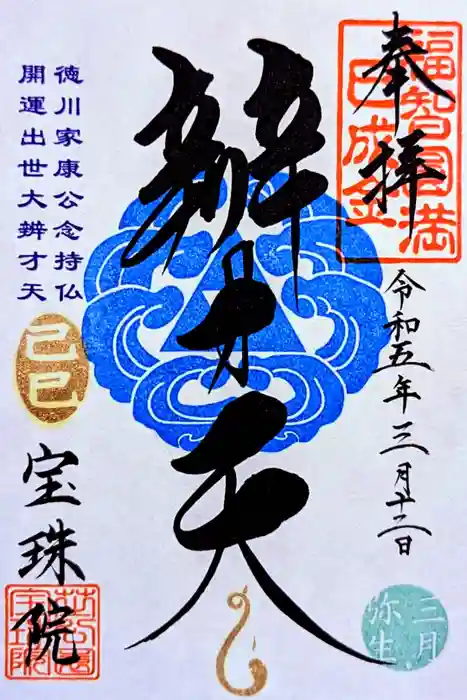 奉拝
福智円満
巳成金
令和五年三月十二日
辨才天
徳川家康公念持仏
開運出世大辨才天
己巳
宝珠院
三月
弥生